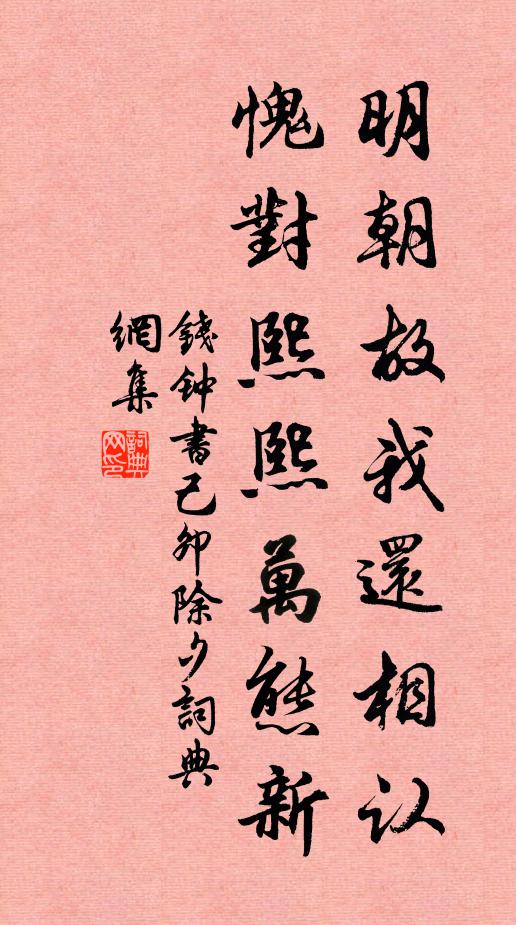 明朝故我還相认
愧對熙熙萬態新
錢钟書己卯除夕詞典
網集
詞典
网印